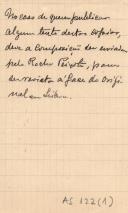 No caso de quererem publicar
algum texto destas copias,
deve a composição ser enviada
pelo Rocha Peixoto, para
ser revista à face do origi-
nal em Lisboa.
AS 122(1)